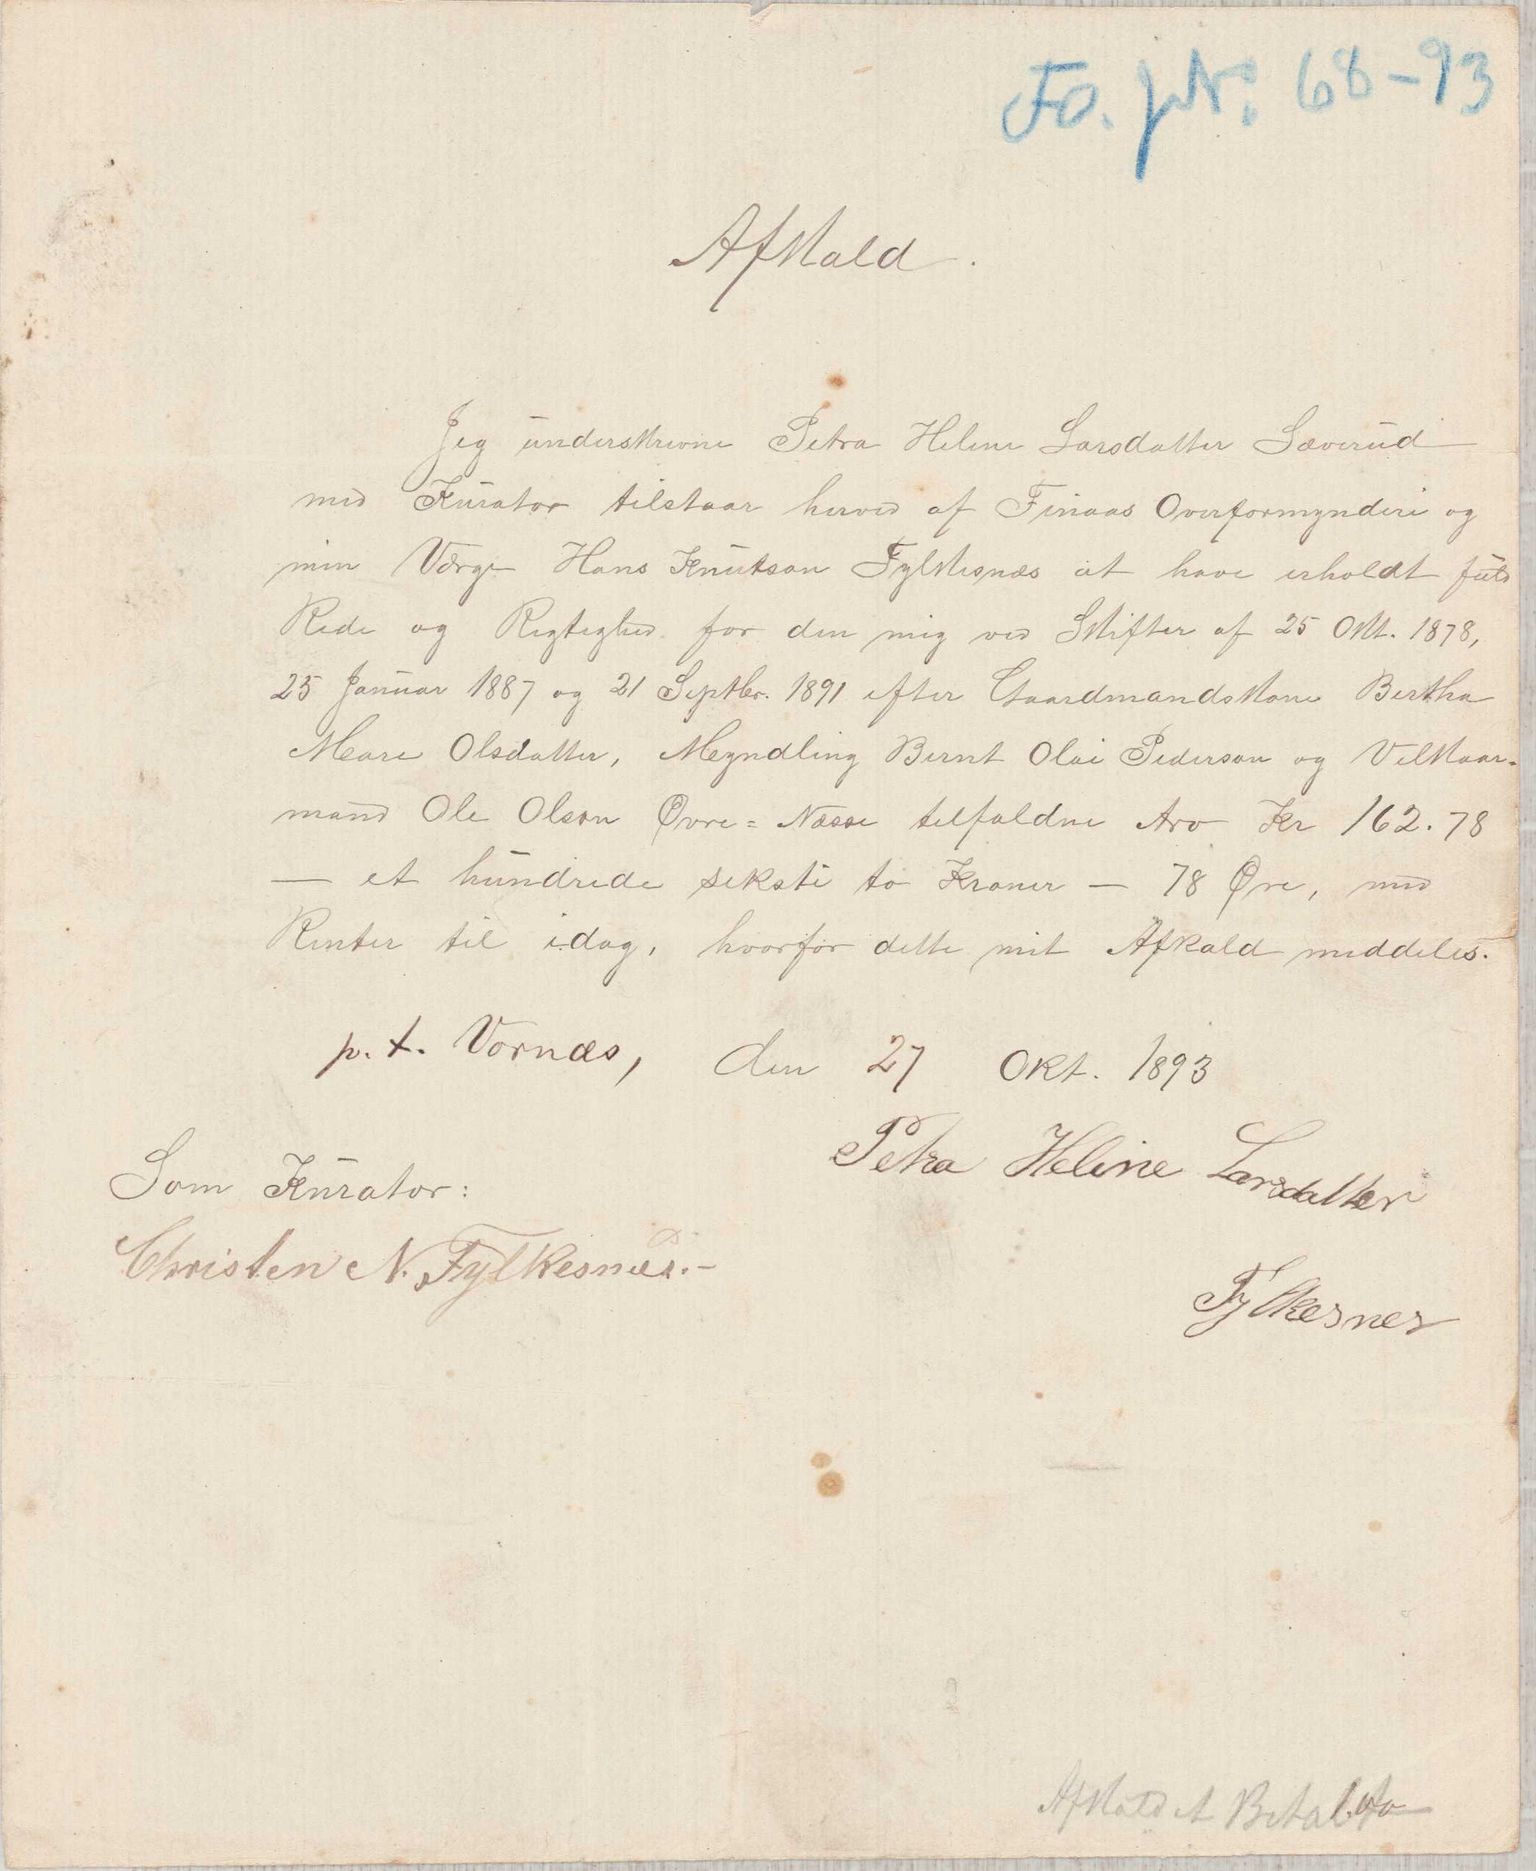 Fo. pNr: 68-93
Afkald.
Jeg underskrevne Petra Heline Larsdatter Sæverud
med Kurator tilstaar herved af Finaas Overformynderi og
min Værge Hans Knutson Fylkesnæs at have erholdt fuld
Rede og Rigtighed for den mig ved Skifter af 25 Okt. 1878,
25 Januar 1887 og 21 Septbr. 1891 efter Gaardmandskone Bertha
Mare Olsdatter, Myndling Bernt Olai Pederson og Velkaar-
mand Ole Olson Øvre=Næsse tilfaldne Arv Kr 162.78
— et hundrede seksti to Kroner — 78 Øre, med
Renter til idag, hvorfor dette mit Afkald meddeles.
p. t. Vornæs, den 27 Okt. 1893
Petra Heline Larsdatter
Som Kurator:
Christen N. Fylkesnæs.-
Fylkesnes
Afkaldet